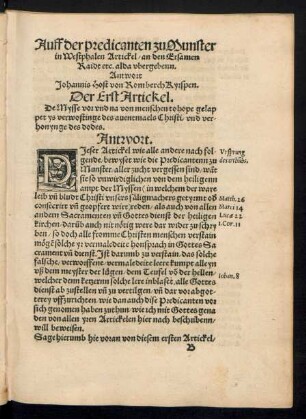 Auff der predicanten zu Munster
in Westphalen Artickel / an den Ersamen
Raidt etc. alda vbergebenn.
Antwort
Johannis Host von Romberch Kyspen.
Der Erst Artickel.
De Mysse vor vnd na von menschen to hope gelap
pet ys verwostinge des auentmaels Christi / vnd ver
honynge des dodes.
Antwort.
DIeser Artickel wie alle andere nach fol-
gende / bewyset wie die Predicantenn zu
Munster aller zucht vergessen sind / wäl
sie so vnwürdiglichen von dem heiligenn
ampt der Myssen (in welchem der ware
leib vnd blude Christi
consecrirt vnd geopffert wirt) reden / als auch von allen
andern Sacramenten vnd Gottes dienst der heiligen
kirchen / darüb auch nit nötig were dar wider zu schry
ben / so doch alle fromme Christen menschen verstain
mögen solche ys vermaledeite honsprach in Gottes Sacra
ment vnd dienst. Ist darumb zu verstan / das solche
falsche / verworffene / vermaledeite leere kumpt al
vß dem meyster der lügen / dem Teufel vß der hellen /
welcher denn ketzernn solche lere inblaset / alle Gottes
dienst ab zustellen vnd zu vertilgen / vnd dar vor abgot-
terey vffzurichten / wie dan auch dise Predicanten vor
sich genomen haben zuthun / wie ich mit Gottes gena
den von allen yren Artickelen hier nach beschribenn
will beweisen.
Sage hierumb hie voran von diesem ersten Artickel /
B
Vrsprung
Matth. 26
Marci. 14
Luce. 22
1. Cor. 11
Iohan. 8